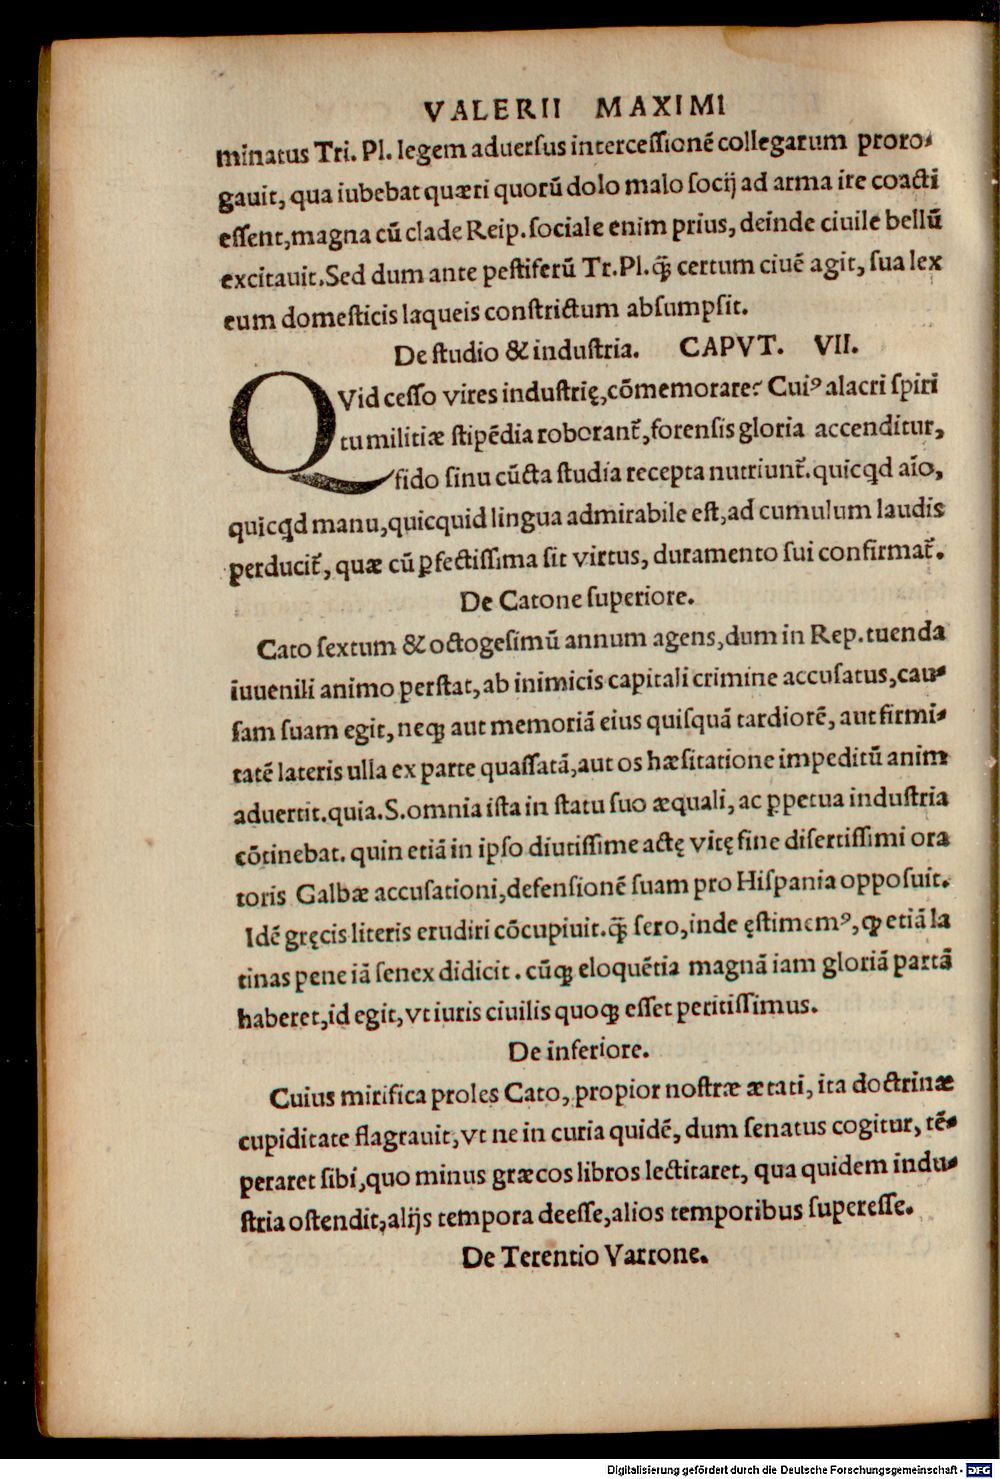 VALERII MAXIMI
minatus Tri. Pl. legem aduersus intercessionē collegarum proro-
gauit, qua iubebat quæri quorū dolo malo socij ad arma ire coacti
essent, magna cū clade Reip. sociale enim prius, deinde ciuile bellū
excitauit. Sed dum ante pestiferū Tr. Pl. q̃ꝫ certum ciuē agit, sua lex
eum domesticis laqueis constrictum absumpsit.
De studio & industria. CAPVT. VII.
QVid cesso vires industrię, cōmemorare? Cuiꝰ alacri spiri
tu militiæ stipēdia roborant̃, forensis gloria accenditur,
fido sinu cūcta studia recepta nutriunt̃. quicqd aīo,
quicqd manu, quicquid lingua admirabile est, ad cumulum laudis
perducit̃, quæ cū ꝑfectissima sit virtus, duramento sui confirmat̃.
De Catone superiore.
Cato sextum & octogesimū annum agens, dum in Rep. tuenda
iuuenili animo perstat, ab inimicis capitali crimine accusatus, cau-
sam suam egit, neqꝫ aut memoriā eius quisquā tardiorē, aut firmi-
tatē lateris ulla ex parte quassatā, aut os hæsitatione impeditū anim
aduertit. quia. S. omnia ista in statu suo æquali, ac ꝑpetua industria
cōtinebat. quin etiā in ipso diutissime actę vitę fine disertissimi ora
toris Galbæ accusationi, defensionē suam pro Hispania opposuit.
Idē gręcis literis erudiri cōcupiuit. q̃ꝫ sero, inde ęstimemꝰ, ꝙ etiā la
tinas pene iā senex didicit. cūqꝫ eloquētia magnā iam gloriā partā
haberet, id egit, vt iuris ciuilis quoqꝫ esset peritissimus.
De inferiore.
Cuius mirifica proles Cato, propior nostræ ætati, ita doctrinæ
cupiditate flagrauit, vt ne in curia quidē, dum senatus cogitur, tē-
peraret sibi, quo minus græcos libros lectitaret, qua quidem indu-
stria ostendit, alijs tempora deesse, alios temporibus superesse.
De Terentio Varrone.
Digitalisierung gefördert durch die Deutsche Forschungsgemeinschaft - DFG